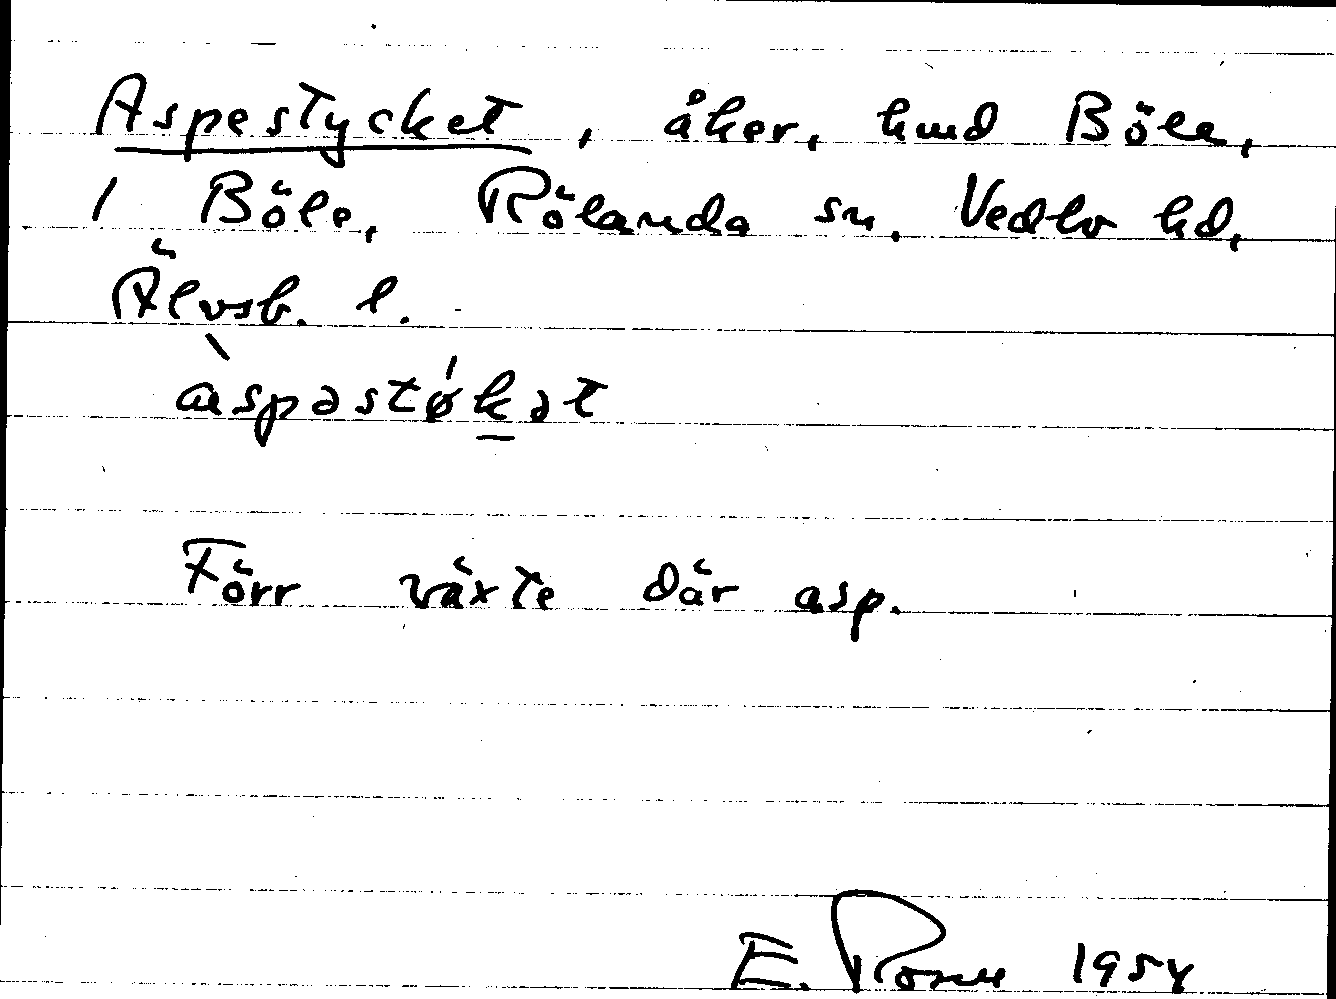 Aspestycket, åker, hmd Böle,
1 Böle, Rölanda sn, Vedbo hd,
Älvsb. l.
àspəstǿk̲ət
Förr växte där asp.
E. 1954